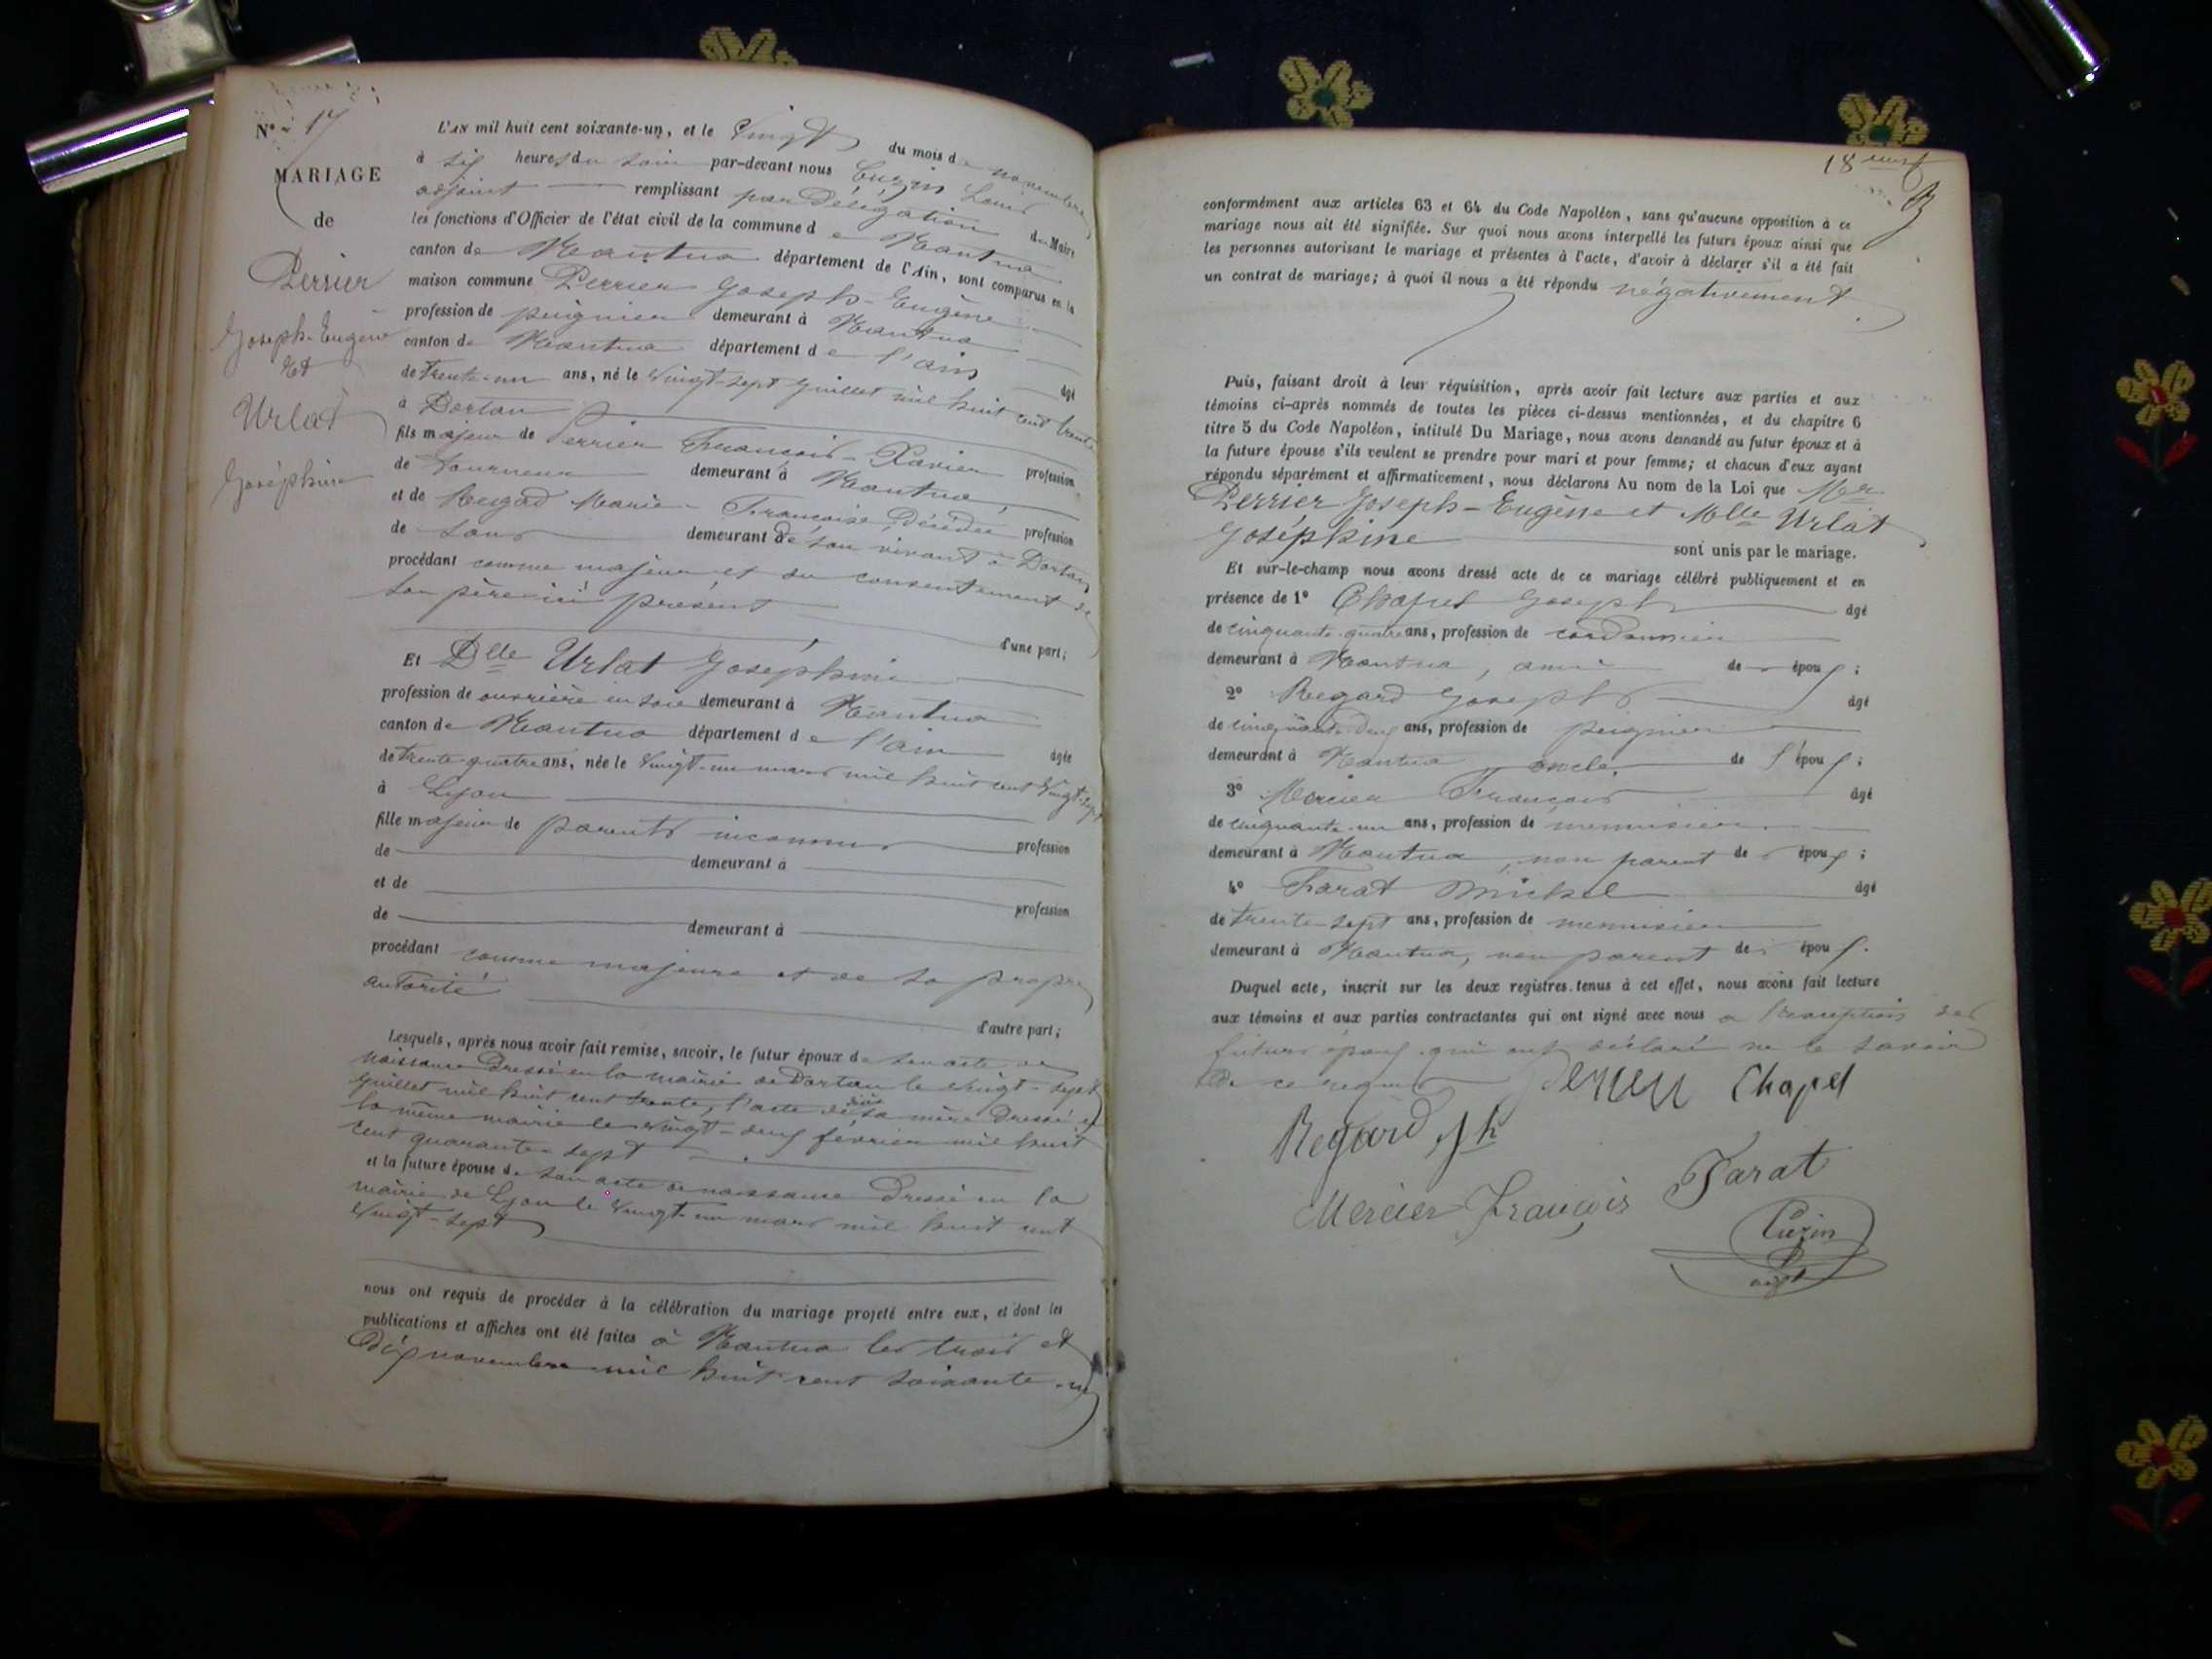 N° 17
MARIAGE
de
Perrier
Joseph-Eugène
Et
Urlat
Joséphine
L'AN mil huit cent soixante-un, et le Vingt du mois de novembre
à six heures du soir par-devant nous Cuzin Louis
adjoint remplissant par Délégation du Maire
les fonctions d'Officier de l'état civil de la commune de Nantua
canton de Nantua département de l'Ain, sont comparus en la
maison commune Perrier Joseph-Eugène
profession de peignier demeurant à Nantua
canton de Nantua département de l'ain âgé
de trente-un ans, né le Vingt-sept Juillet mil huit cent trente
à Dortan
fils majeur de Perrier François-Xavier profession
de tourneur demeurant à Nantua
et de Regad Marie-Françoise Décédée profession
de sans demeurant de son vivant à Dortan
procédant comme majeur et du consentement de
son père ici présent
d'une part;
Et Dlle Urlat Joséphine
profession de ouvrière en soie demeurant à Nantua
canton de Nantua département de l'ain âgée
de trente-quatre ans, née le Vingt-un mars mil huit cent Vingt-sept
à Lyon
fille majeure de parents inconnus profession
de demeurant à
et de profession
de demeurant à
procédant comme majeure et de sa propre
autorité
d'autre part;
Lesquels, après nous avoir fait remise, savoir, le futur époux de son acte de
naissance Dressé en la mairie de Dortan le vingt-sept
Juillet mil huit cent trente, l'acte de décès sa mère Dressé à
la même mairie le vingt-deux février mil huit
cent quarante-sept
et la future épouse de son acte de naissance Dressé en la
mairie de Lyon le Vingt-un mars mil huit cent
vingt-sept
nous ont requis de procéder à la célébration du mariage projeté entre eux, et dont les
publications et affiches ont été faites à Nantua les trois et
Dix novembre mil huit cent soixante-un
18
conformément aux articles 63 et 64 du Code Napoléon, sans qu'aucune opposition à ce
mariage nous ait été signifiée. Sur quoi nous avons interpellé les futurs époux ainsi que
les personnes autorisant le mariage et présentes à l'acte, d'avoir à déclarer s'il a été fait
un contrat de mariage; à quoi il nous a été répondu négativement
Puis, faisant droit à leur réquisition, après avoir fait lecture aux parties et aux
témoins ci-après nommés de toutes les pièces ci-dessus mentionnées, et du chapitre 6
titre 5 du Code Napoléon, intitulé Du Mariage, nous avons demandé au futur époux et à
la future épouse s'ils veulent se prendre pour mari et pour femme; et chacun d'eux ayant
répondu séparément et affirmativement, nous déclarons Au nom de la Loi que Mr
Perrier Joseph-Eugène et Mlle Urlat
Joséphine sont unis par le mariage.
Et sur-le-champ nous avons dressé acte de ce mariage célébré publiquement et en
présence de 1° Chapel Joseph âgé
de cinquante-quatre ans, profession de cordonnier
demeurant à Nantua, ami de époux;
2° Regard Joseph âgé
de cinquante-deux ans, profession de peignier
demeurant à Nantua oncle de l'époux;
3° Mercier François âgé
de cinquante-un ans, profession de menuisier
demeurant à Nantua, non parent des époux;
4° Farat Michel âgé
de trente-sept ans, profession de menuisier
demeurant à Nantua, non parent des époux.
Duquel acte, inscrit sur les deux registres tenus à cet effet, nous avons fait lecture
aux témoins et aux parties contractantes qui ont signé avec nous a l'exception des
futurs époux qui ont déclaré ne le savoir
de ce requis Perrier Chapel
Regard Jh
Mercier François Farat
Cuzin
adjt